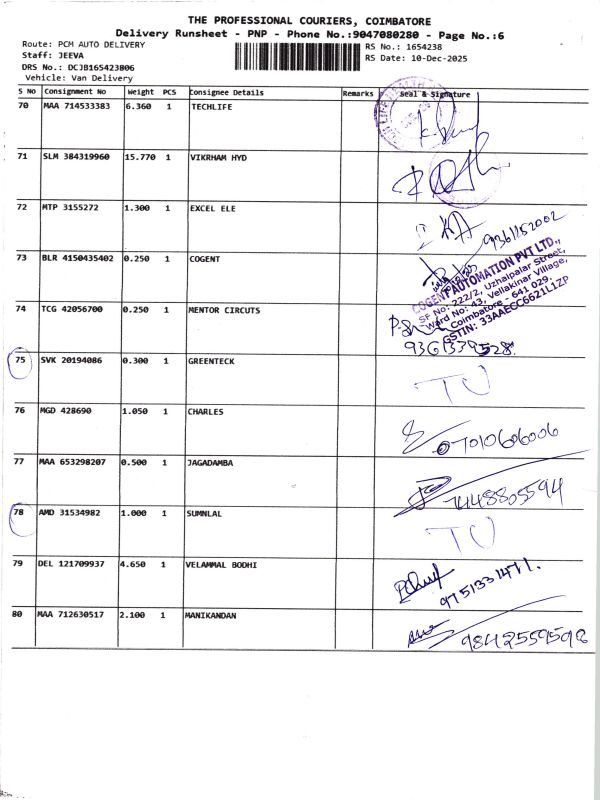 THE PROFESSIONAL COURIERS, COIMBATORE
Delivery Runsheet - PNP - Phone No.:9047080280 - Page No.:6
Route: PCM AUTO DELIVERY
RS No.: 1654238
Staff: JEEVA
RS Date: 10-Dec-2025
DRS No.: DCJB165423B06
Vehicle: Van Delivery
S No Consignment No Weight PCS Consignee Details Remarks Seal & Signature
70 MAA 714533383 6.360 1 TECHLIFE
71 SLM 384319960 15.770 1 VIKRHAM HYD
72 MTP 3155272 1.300 1 EXCEL ELE
9361152002
73 BLR 4150435402 0.250 1 COGENT
COGENT AUTOMATION PVT LTD.,
SF No. 222/2, Uzhaipalar Street,
Ward No: 43, Vellakinar Village,
Coimbatore - 641 029.
GSTIN: 33AAECC6621L1ZP
74 TCG 42056700 0.250 1 MENTOR CIRCUTS
9361339528
75 SVK 20194086 0.300 1 GREENTECK
TU
76 MGD 428690 1.050 1 CHARLES
07010606006
77 MAA 653298207 0.500 1 JAGADAMBA
7448805594
78 AMD 31534982 1.000 1 SUMNLAL
TU
79 DEL 121709937 4.650 1 VELAMMAL BODHI
9751331471.
80 MAA 712630517 2.100 1 MANIKANDAN
9842559598